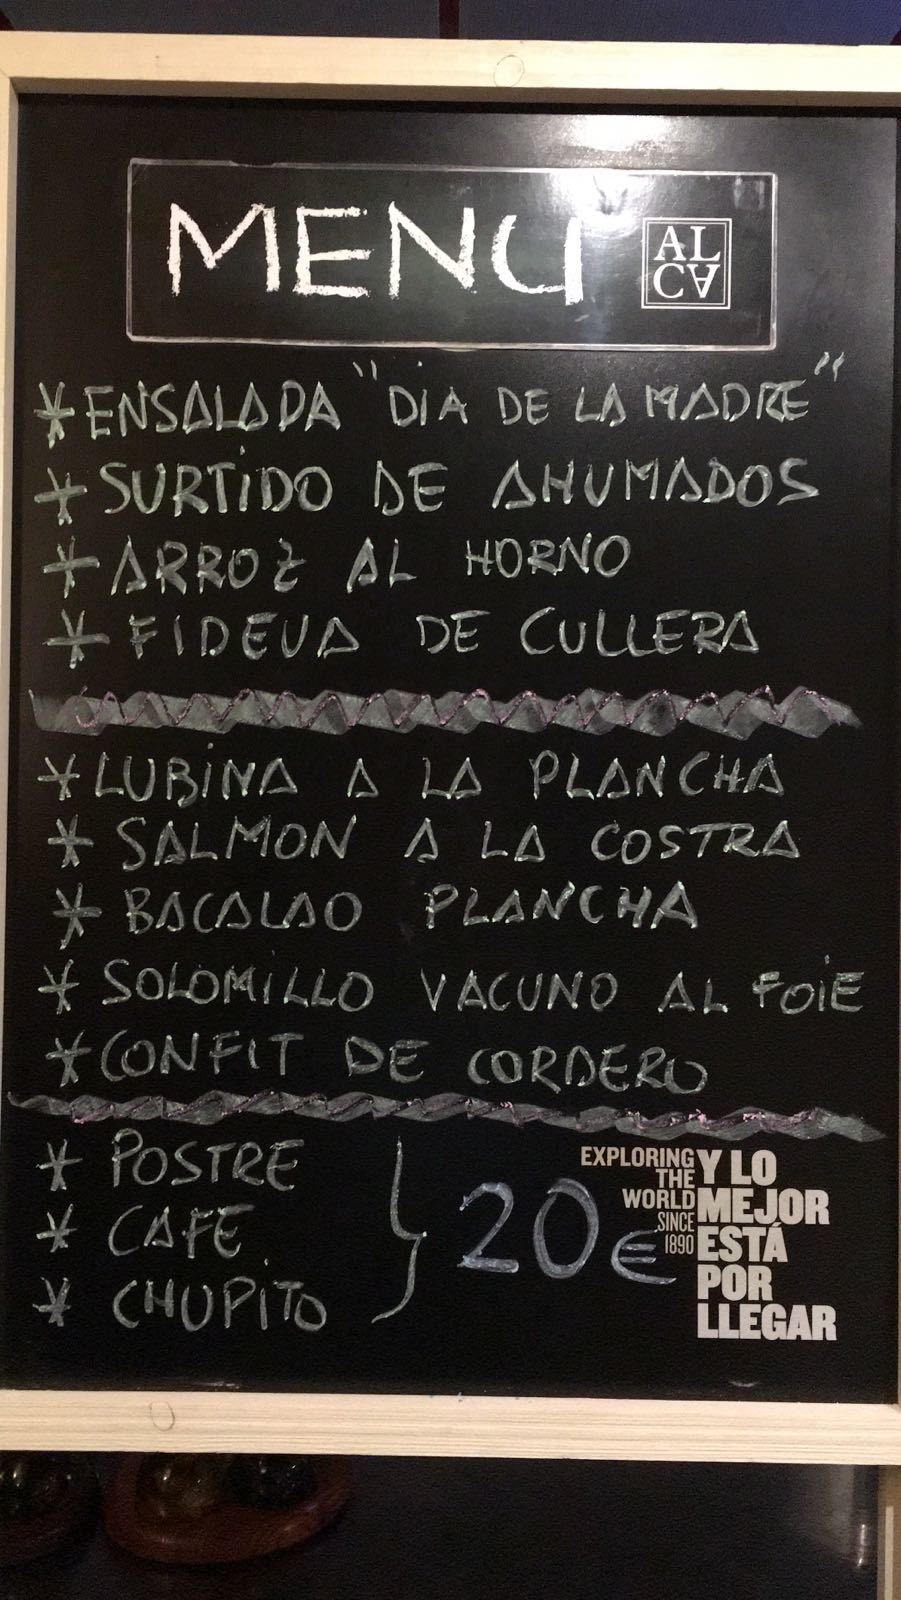 MENU
AL
CA
* ENSALADA "DIA DE LA MADRE"
* SURTIDO DE AHUMADOS
* ARROZ AL HORNO
* FIDEUA DE CULLERA
* LUBINA A LA PLANCHA
* SALMON A LA COSTRA
* BACALAO PLANCHA
* SOLOMILLO VACUNO AL FOIE
* CONFIT DE CORDERO
* POSTRE
* CAFE
* CHUPITO
20€
EXPLORING
THE
WORLD
SINCE
1890
Y LO
MEJOR
ESTÁ
POR
LLEGAR